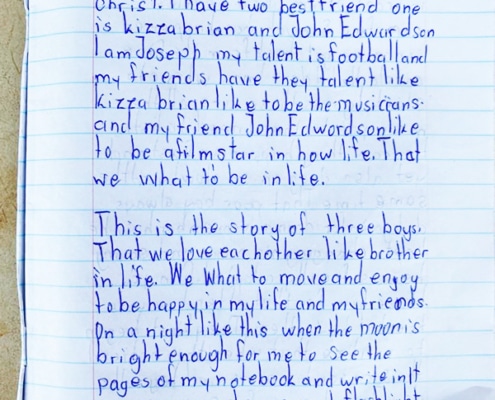 Christ. I have two bestfriend one
is kizza brian and John Edwardson
I am Joseph my talent is football and
my friends have they talent like
kizza brian like to be the musicians.
and my friend John Edwordson like
to be a film star in how life. That
we what to be in life.
This is the story of three boys.
That we love eachother like brother
in life. We what to move and enjoy
to be happy in my life and my friends.
On a night like this when the moon is
bright enough for me to see the
pages of my notebook and write in It
and flashlight